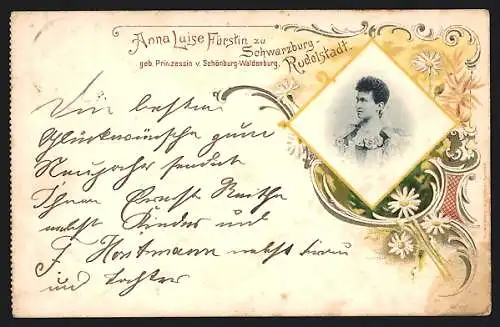 Anna Luise Fürstin zu
Schwarzburg-
Rudolstadt.
geb. Prinzessin v. Schönburg-Waldenburg.
Die besten
Glückwünsche zum
Neujahr sendet
Ihnen Ernst
nebst Kinder und
F. Horstmann nebst Frau
und Tochter